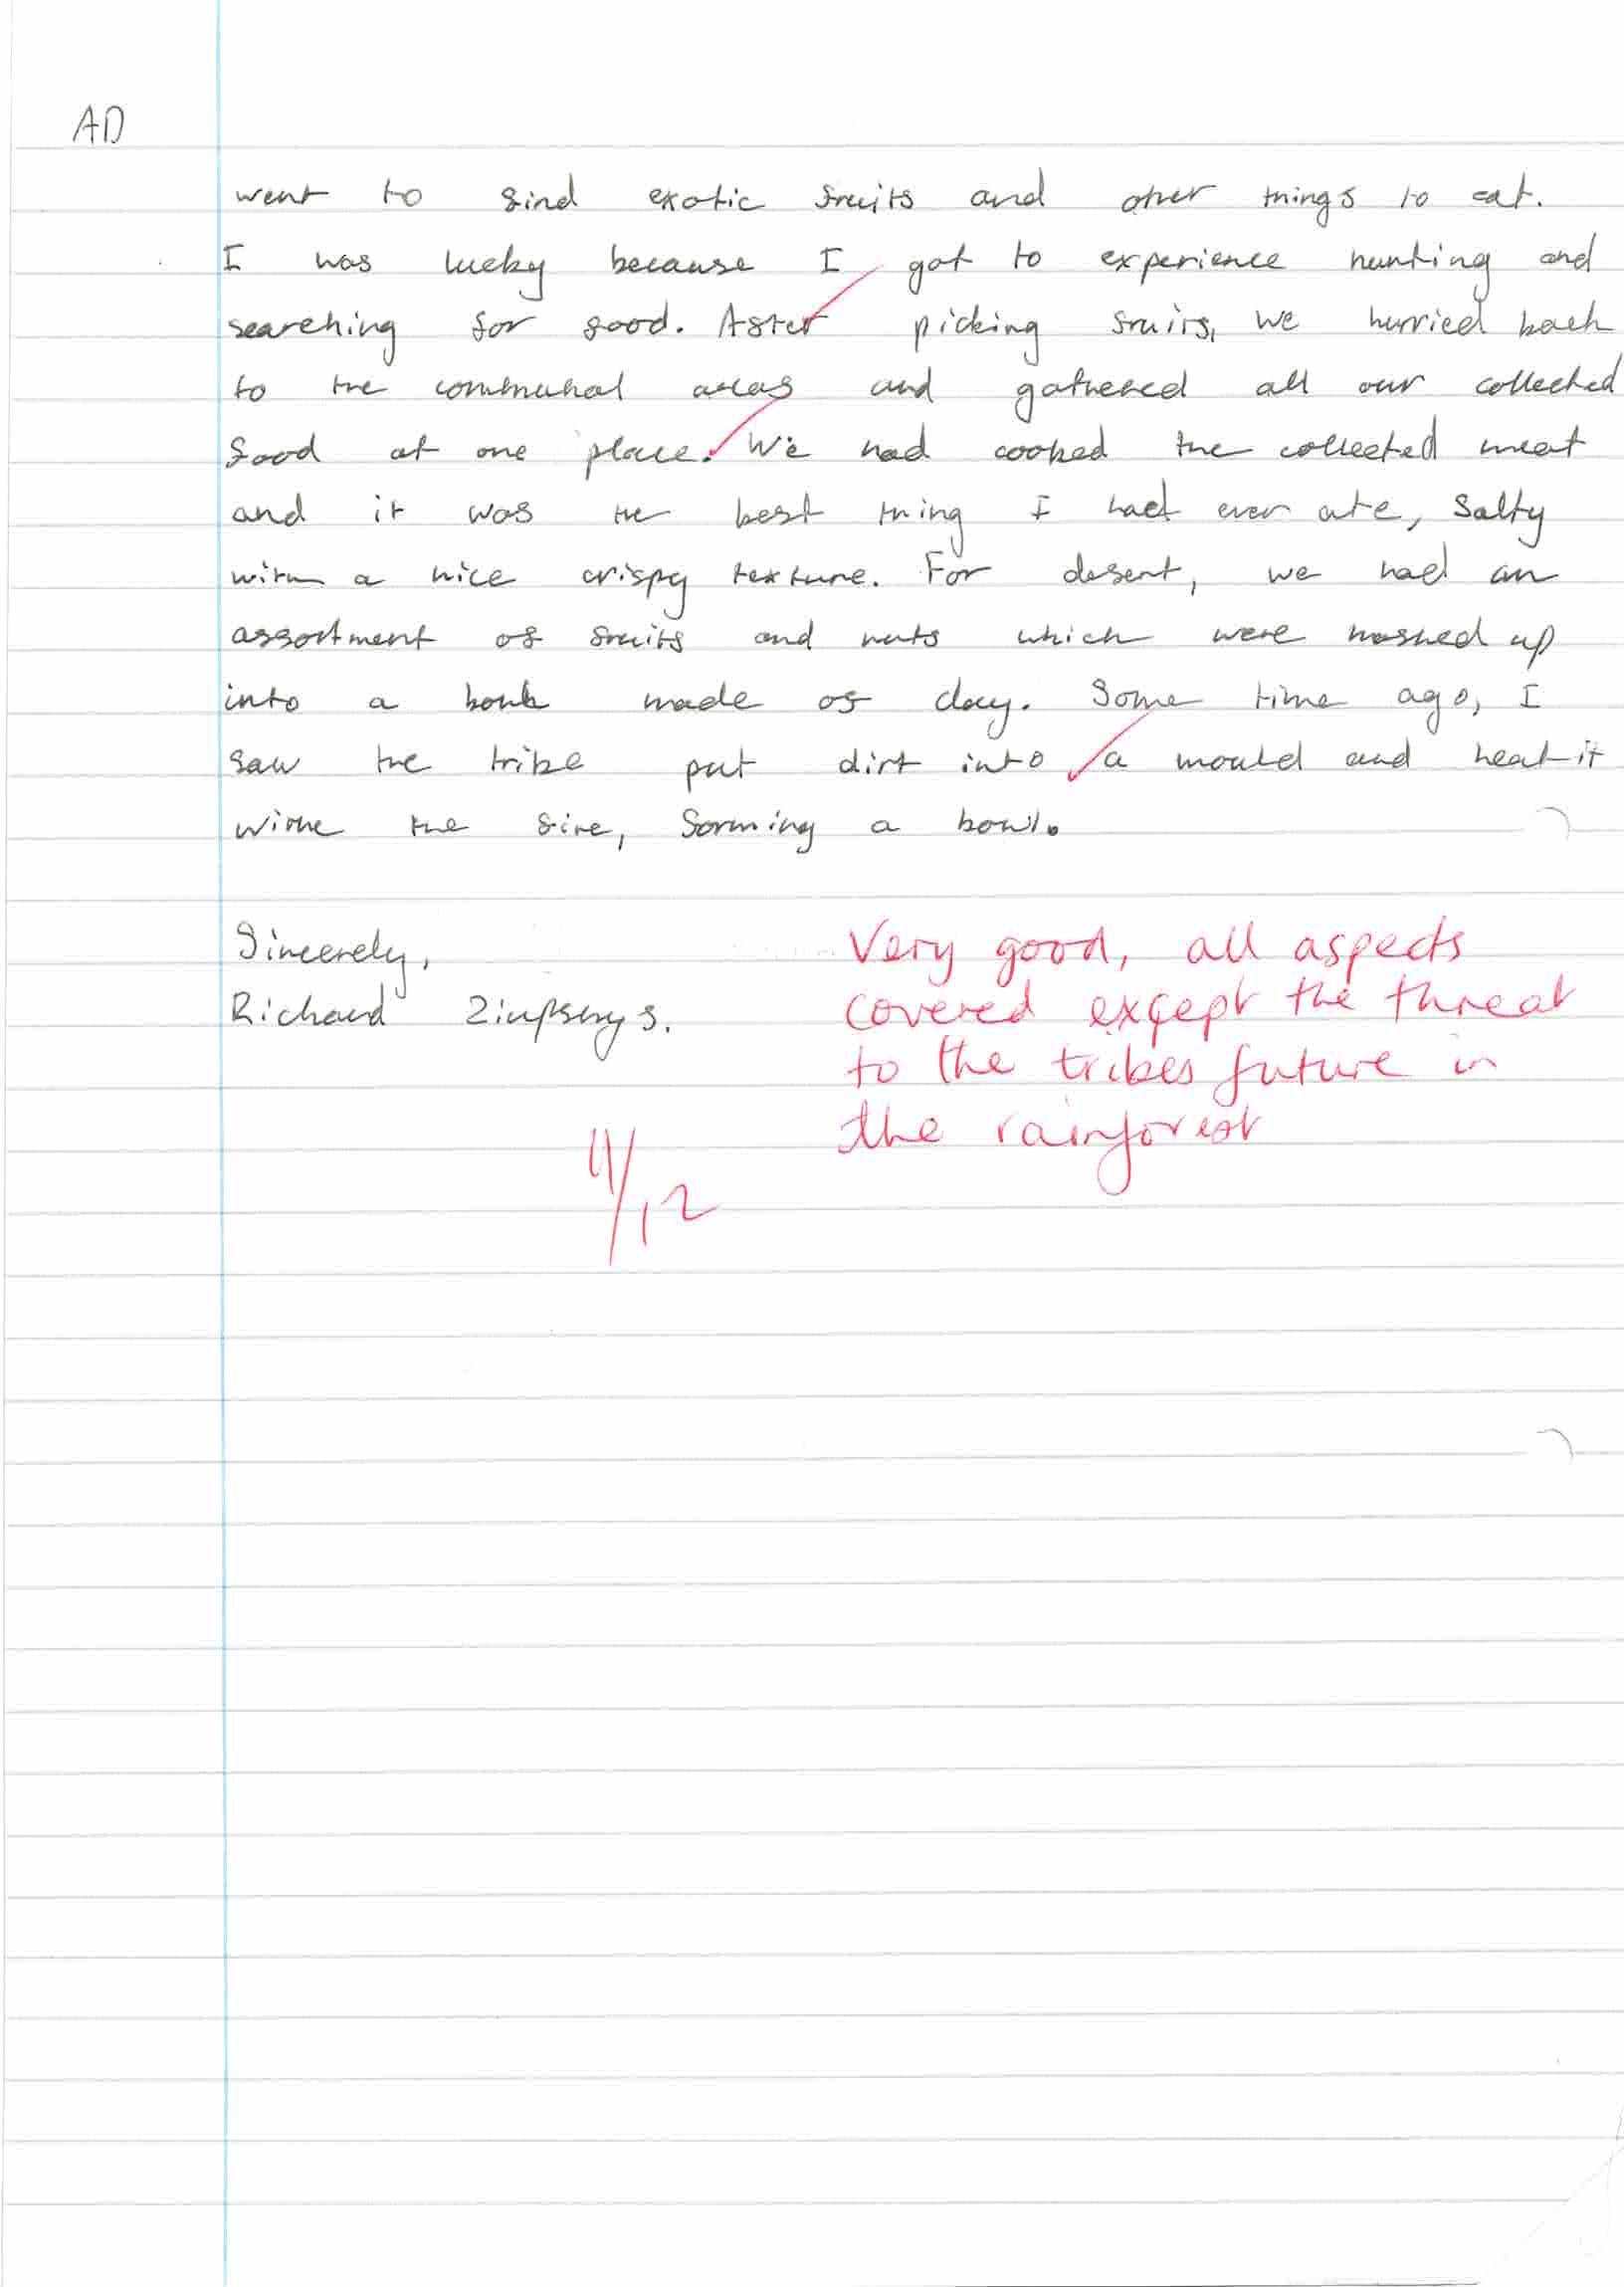 AD
went to find exotic fruits and other things to eat.
I was lucky because I got to experience hunting and
searching for food. After picking fruits, we hurried back
to the communal areas and gathered all our collected
food at one place. We had cooked the collected meat
and it was the best thing I had ever ate, salty
with a nice crispy texture. For desert, we had an
assortment of fruits and nuts which were mashed up
into a made of clay. Some time ago, I
saw the tribe put dirt into a mould and heat it
withe the fire, forming a bowl.
Sincerely,
Richard
Very good, all aspects
covered except the threat
to the tribes future in
the rainforest
11/12